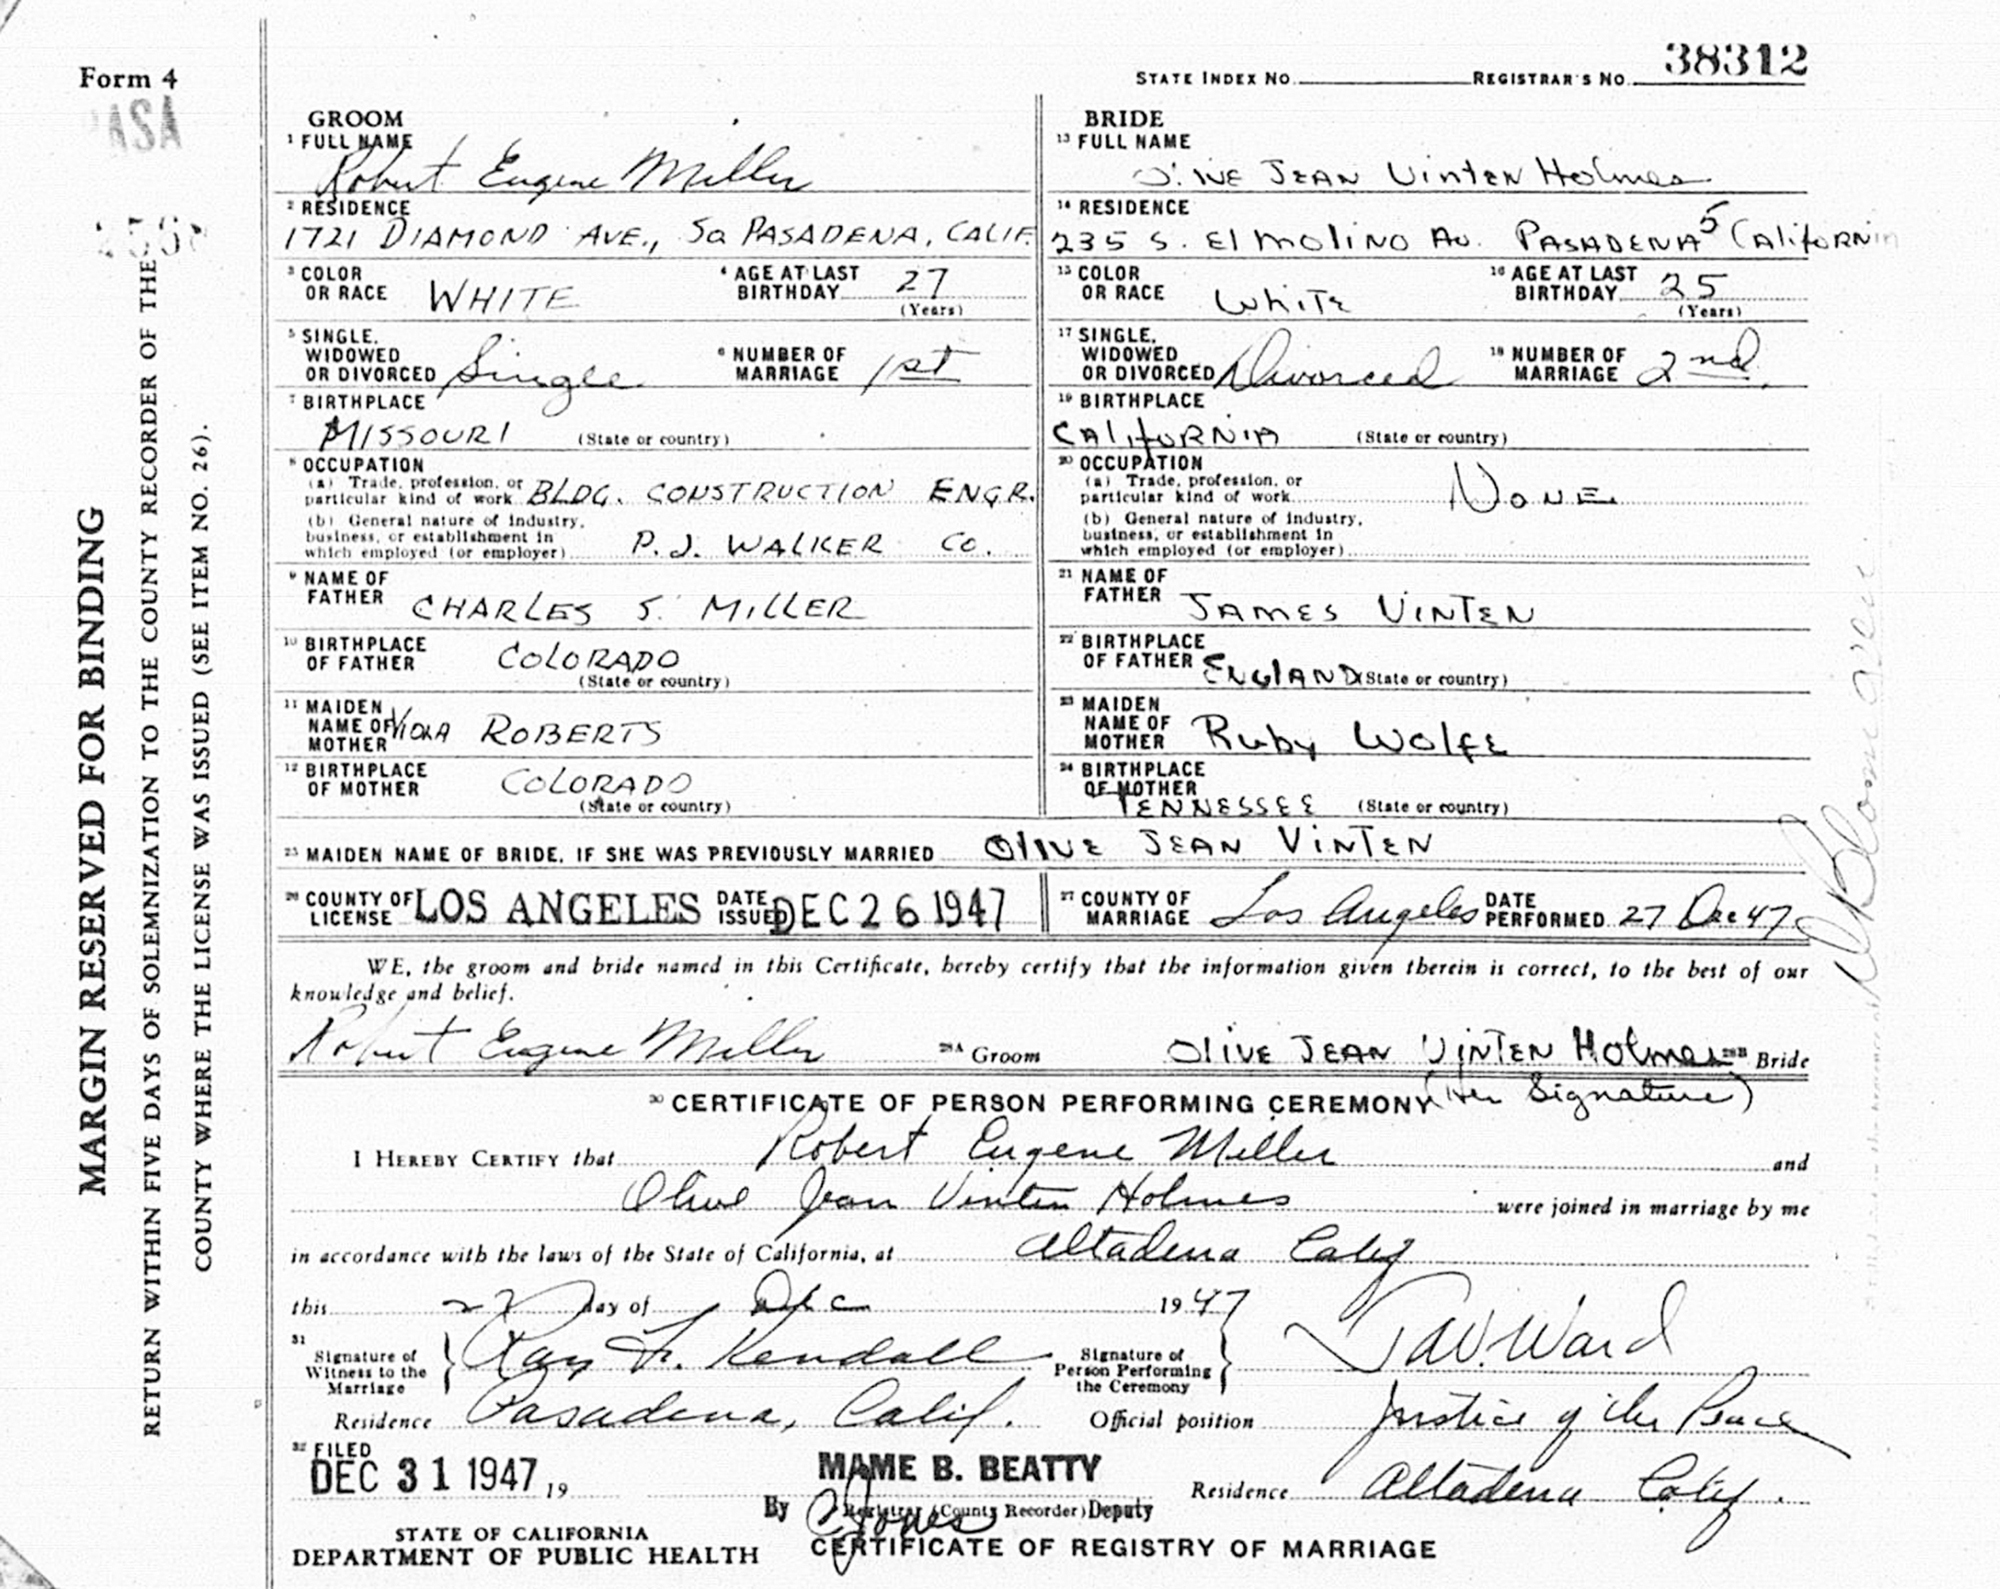 Form 4
PASA
STATE INDEX NO. REGISTRAR'S NO. 38312
MARGIN RESERVED FOR BINDING
RETURN WITHIN FIVE DAYS OF SOLEMNIZATION TO THE COUNTY RECORDER OF THE
COUNTY WHERE THE LICENSE WAS ISSUED (SEE ITEM NO. 26).
GROOM
1 FULL NAME
Robert Eugene Miller
2 RESIDENCE
1721 DIAMOND AVE., So PASADENA, CALIF.
3 COLOR OR RACE WHITE
4 AGE AT LAST BIRTHDAY 27 (Years)
5 SINGLE, WIDOWED OR DIVORCED Single
6 NUMBER OF MARRIAGE 1st
7 BIRTHPLACE
MISSOURI (State or country)
8 OCCUPATION
(a) Trade, profession, or
particular kind of work BLDG. CONSTRUCTION ENGR.
(b) General nature of industry,
business, or establishment in
which employed (or employer) P.J. WALKER CO.
9 NAME OF FATHER CHARLES S. MILLER
10 BIRTHPLACE OF FATHER COLORADO
(State or country)
11 MAIDEN NAME OF MOTHER VIOLA ROBERTS
12 BIRTHPLACE OF MOTHER COLORADO
(State or country)
BRIDE
13 FULL NAME
OLIVE JEAN VINTEN Holmes
14 RESIDENCE
235 S. El Molino Av. PASADENA 5 CAliforNiA
15 COLOR OR RACE White
16 AGE AT LAST BIRTHDAY 25 (Years)
17 SINGLE, WIDOWED OR DIVORCED Divorced
18 NUMBER OF MARRIAGE 2nd
19 BIRTHPLACE
CALIFORNIA (State or country)
20 OCCUPATION
(a) Trade, profession, or
particular kind of work NONE
(b) General nature of industry,
business, or establishment in
which employed (or employer)
21 NAME OF FATHER JAMES VINTEN
22 BIRTHPLACE OF FATHER ENGLAND (State or country)
23 MAIDEN NAME OF MOTHER Ruby Wolfe
24 BIRTHPLACE OF MOTHER
TENNESSEE (State or country)
25 MAIDEN NAME OF BRIDE, IF SHE WAS PREVIOUSLY MARRIED OLIVE JEAN VINTEN
26 COUNTY OF LICENSE LOS ANGELES DATE ISSUED DEC 26 1947
27 COUNTY OF MARRIAGE Los Angeles DATE PERFORMED 27 Dec 47
WE, the groom and bride named in this Certificate, hereby certify that the information given therein is correct, to the best of our
knowledge and belief.
Robert Eugene Miller 28A Groom OLIVE JEAN VINTEN Holmes 28B Bride
(Her Signature)
30 CERTIFICATE OF PERSON PERFORMING CEREMONY
I HEREBY CERTIFY that Robert Eugene Miller and
Olive Jean Vinten Holmes were joined in marriage by me
in accordance with the laws of the State of California, at Altadena Calif
this 27 day of Dec 1947
31 Signature of Witness to the Marriage Ray F. Kendall
Signature of Person Performing the Ceremony Ward
Residence Pasadena, Calif. Official position Justice of the Peace
32 FILED
DEC 31 1947, 19
MAME B. BEATTY
Registrar (County Recorder) Deputy
By Jones
Residence Altadena Calif.
STATE OF CALIFORNIA
DEPARTMENT OF PUBLIC HEALTH
CERTIFICATE OF REGISTRY OF MARRIAGE